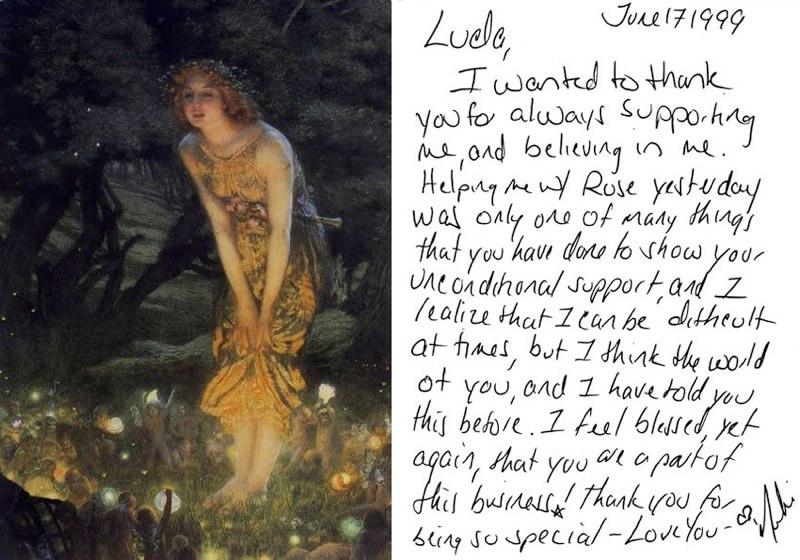 June 17 1999
Luda,
I wanted to thank
you for always supporting
me, and believing in me.
Helping me w/ Rose yesterday
was only one of many things
that you have done to show your
unconditional support, and I
realize that I can be difficult
at times, but I think the world
of you, and I have told you
this before. I feel blessed, yet
again, that you are a part of
this business! Thank you for
being so special - Love You -